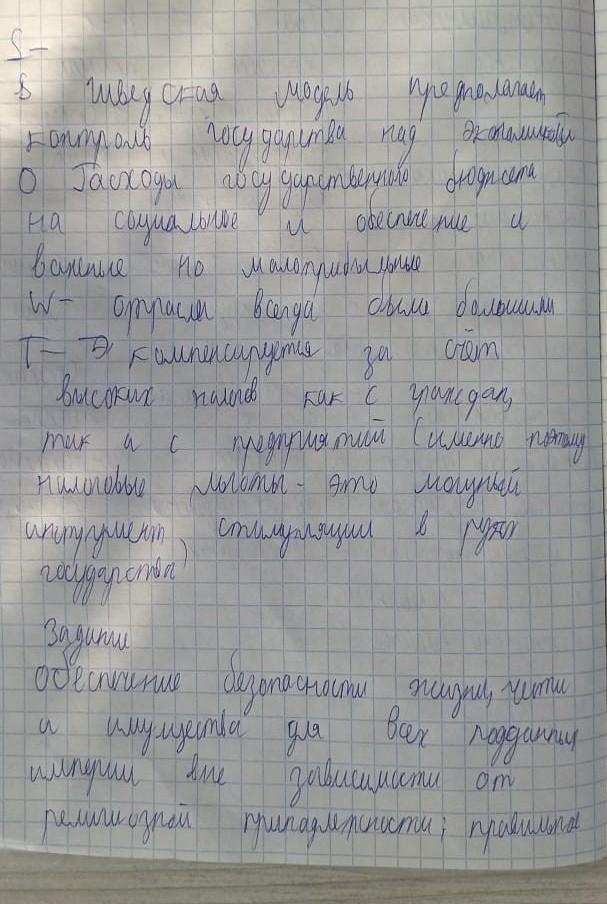 S –
В Шведская модель предполагает
контроль государства над экономикой
О Расходы государственного бюджета
на социальное и обеспечение и
важные но малоприбыльные
W – отрасли всегда были большими
T – Э компенсируется за счёт
высоких налогов как с граждан,
так и с предприятий (именно поэтому
налоговые льготы – это мощный
инструмент стимуляции в руках
государства)
Задание
Обеспечение безопасности жизни, чести
и имущества для всех подданных
империи вне зависимости от
религиозной принадлежности; правильное